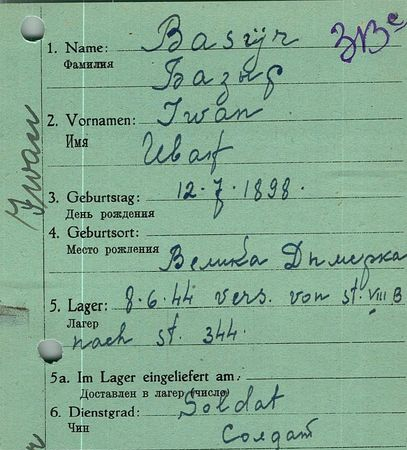 1. Name: Basijr
Фамилия
Базыр
2. Vornamen: Iwan
Имя
Иван
3. Geburtstag: 12.7.1898.
День рождения
4. Geburtsort:
Место рождения
Велика Димерка
5. Lager: 8.6.44 vers. von St. VIII B
Лагер
nach St. 344.
5a. Im Lager eingeliefert am
Доставлен в лагер (число)
6. Dienstgrad: Soldat
Чин
Солдат
Iwan